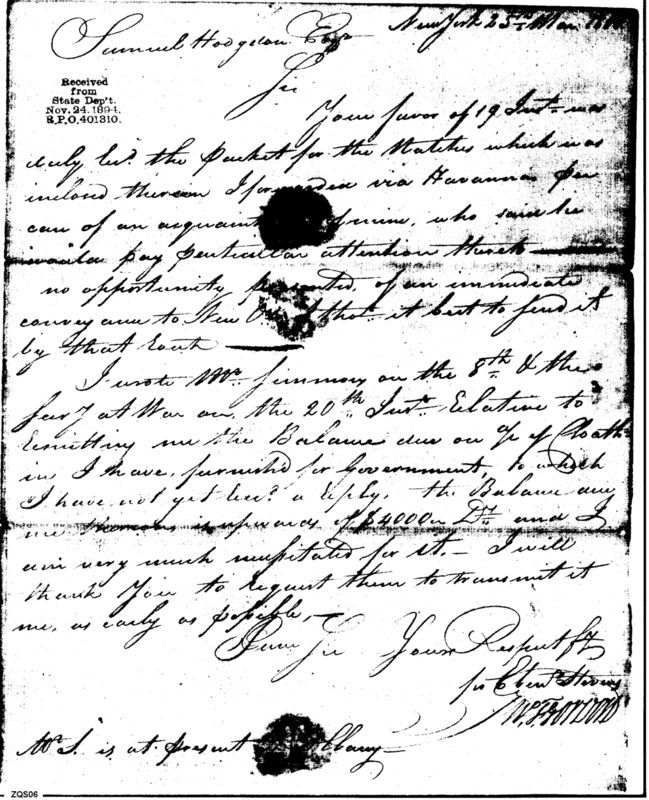 New York 25th Mar
Samuel Hodgdon Esqr
Sir
Received
from
State Dep't.
Nov. 24. 1894.
R.P.O, 401310.
Your favor of 19 Inst. was
duly recd. the Packet for the Natches which was
inclosed therein I forwarded via Havanna per
care of an acquaint of mine, who said he
would pay particular attention thereto
no opportunity presented of an immediate
conveyance to New O thot. it best to send it
by that Rout
I wrote Mr. Simmons on the 8th & the
Secy at War on the 20th Inst. Relative to
Remitting me the Balance due on of Cloath-
ing I have furnished for Government, to which
I have not yet recd. a Reply. the Balance due
me thereon is upwards of $4000 and I
am very much necessitated for it.- I will
thank You to request them to transmit it
me, as early as possible,
I am Sir Your Respectfy
for Eben Stevens
Mr S. is at present Albany
ZQS06